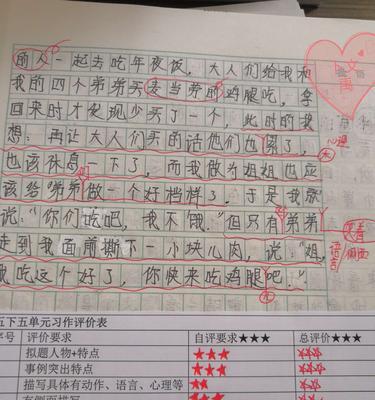 的人一起去吃年夜饭，大人们给我和
我的四个弟弟买麦当劳的鸡腿吃，拿
回来时才发现少买了一个，此时的我
想：再让大人们买的话他们也累了，
也该休息一下了，而我做为姐姐也应
该给弟弟做一个好档样了，于是我就
说：“你们吃吧，我不饿。”但只有弟弟
走到我面前撕下一小块儿肉，说：“姐，
我吃这个好了，你快来吃鸡腿吧！”
心理
语言
侧面
五下五单元习作评价表
序号 评价要求 自评要求★★★ 总评价★★★
拟题人物+特点 ★★★ ★★★
事例突出特点 ★★★ ★★★
描写具体有动作、语言、心理等 ★★ ★★★
有侧面描写